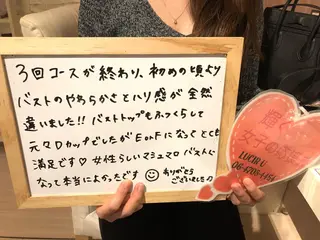 3回コースが終わり、初めの頃より
バストのやわらかさとハリ感が全然
違いました!! バストトップもふっくらして
元々Dカップでしたが EorFになってとても
満足です♡ 女性らしいマシュマロバストに
なって本当によかったです
ありがとう
ございました
輝く
女子の
LUCIR